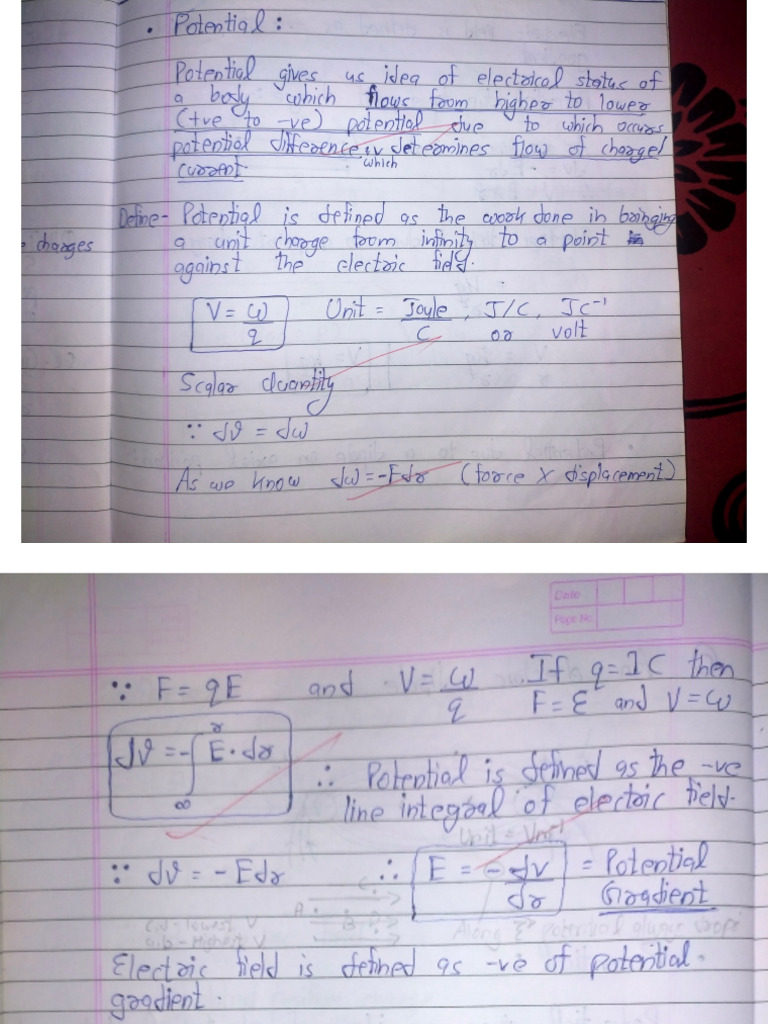 • Potential :
Potential gives us idea of electrical status of
a body which flows from higher to lower
(+ve to -ve) potential due to which occurs
potential difference & v determines flow of charge/
which
current
Define- Potential is defined as the work done in bringing
charges
a unit charge from infinity to a point
against the electric field.
V = ω/q Unit = Joule/C , J/C, JC⁻¹
or volt
Scalar Quantity
∵ dv = dω
As we know dω = -Fdr (force x displacement)
Date
Page No.
∵ F = qE and V = ω/q If q = 1C then
F = E and V = ω
dv = -∫ E · dr
r
∞
∴ Potential is defined as the -ve
line integral of electric field.
∵ dv = - Edr ∴ E = - dv/dr = Potential
Gradient
Electric field is defined as -ve of potential
gradient.